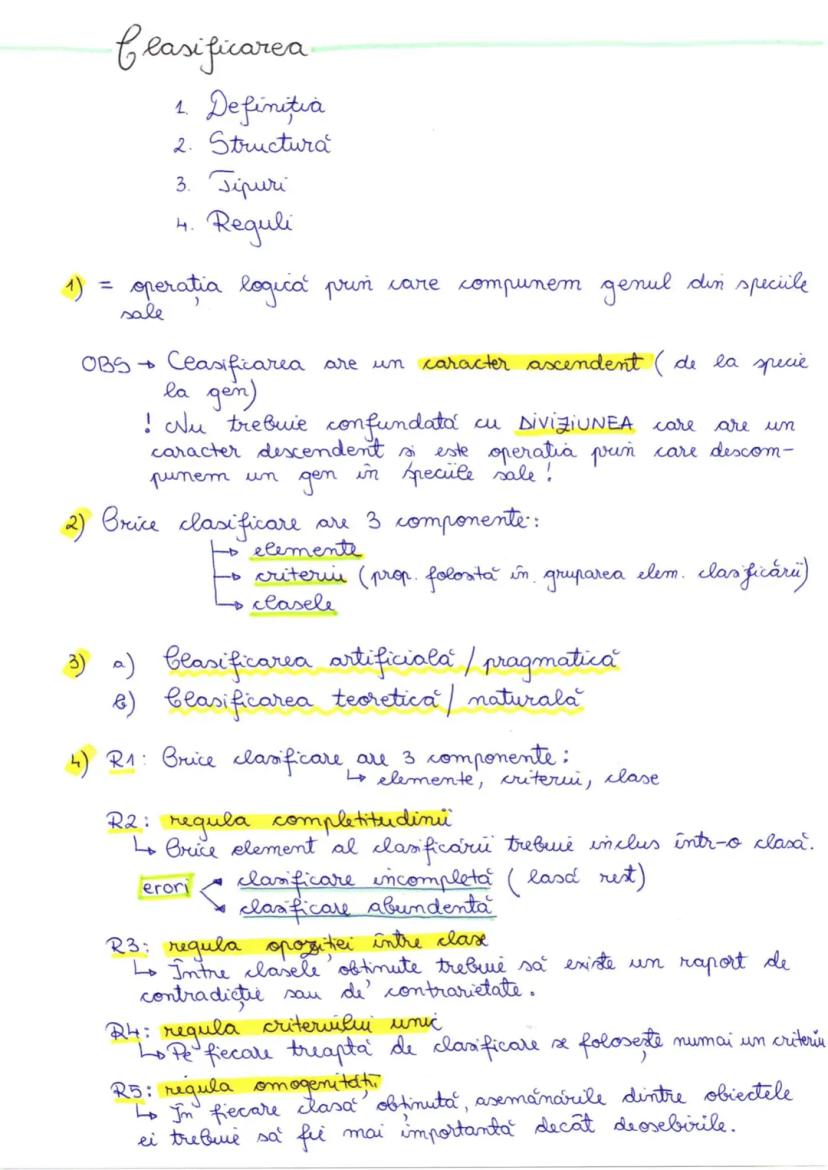 Clasificarea
1. Definiția
2. Structură
3. Tipuri
4. Reguli
1) = operația logică prin care compunem genul din speciile
sale
OBS → Clasificarea are un caracter ascendent ( de la specie
la gen)
! Nu trebuie confundată cu DIVIZIUNEA care are un
caracter descendent și este operația prin care descom-
punem un gen în speciile sale !
2) Orice clasificare are 3 componente:
→ elemente
→ criteriu (prop. folosită în gruparea elem. clasificării)
→ clasele
3) a) Clasificarea artificială / pragmatică
b) Clasificarea teoretică / naturală
4) R1: Orice clasificare are 3 componente:
↳ elemente, criteriu, clase
R2: regula completitudinii
↳ Orice element al clasificării trebuie inclus într-o clasă.
erori
clasificare incompletă ( lasă rest)
clasificare abundentă
R3: regula opoziției între clase
↳ Între clasele obținute trebuie să existe un raport de
contradicție sau de contrarietate.
R4: regula criteriului unic
↳ Pe fiecare treaptă de clasificare se folosește numai un criteriu
R5: regula omogenității
↳ În fiecare clasă obținută, asemănările dintre obiectele
ei trebuie să fie mai importantă decât deosebirile.